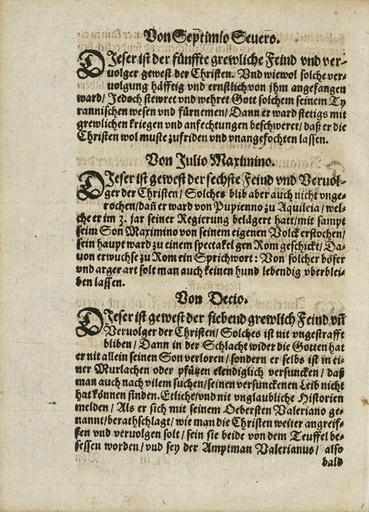 Von Septimio Seuero.
DJeser ist der fünffte grewliche Feind vnd ver-
uolger gewest der Christen. Vnd wiewol solche ver-
uolgung häfftig vnd ernstlich von jhm angefangen
ward/ Jedoch stewret vnd wehret Gott solchem seinem Ty
rannischen wesen vnd fürnemen/ Dann er ward stetigs mit
grewlichen kriegen vnd anfechtungen beschweret/ daß er die
Christen wol muste zufriden vnd vnangefochten lassen.
Von Julio Maximino.
DJeser ist gewest der sechste Feind vnd Veruol-
ger der Christen/ Solches blib aber auch nicht vnge-
rochen/ daß er ward von Pupienno zu Aquileia/ wel-
che er im 3. jar seiner Regierung belägert hatt/ mit sampt
seim Son Maximino von seinem eigenen Volck erstochen/
sein haupt ward zu einem spectakel gen Rom geschickt/ Da-
uon erwuchse zu Rom ein Sprichwort: Von solcher böser
vnd arger art solt man auch keinen hund lebendig vberblei-
ben lassen.
Von Decio.
DJeser ist gewest der siebend grewlich Feind vñ
Veruolger der Christen/ Solches ist nit vngestrafft
bliben/ Dann in der Schlacht wider die Gotten hat
er nit allein seinen Son verloren/ sondern er selbs ist in ei-
ner Murlachen oder pfützen elendiglich versuncken/ daß
man auch nach vilem suchen/ seinen versunckenen Leib nicht
hat können finden. Etliche/ vnd nit vnglaubliche Historien
melden/ Als er sich mit seinem Oebersten Valeriano ge-
nannt/ berathschlagt/ wie man die Christen weiter angreif-
fen vnd veruolgen solt/ sein sie beide von dem Teuffel be-
sessen worden/ vnd sey der Amptman Valerianus/ also
bald